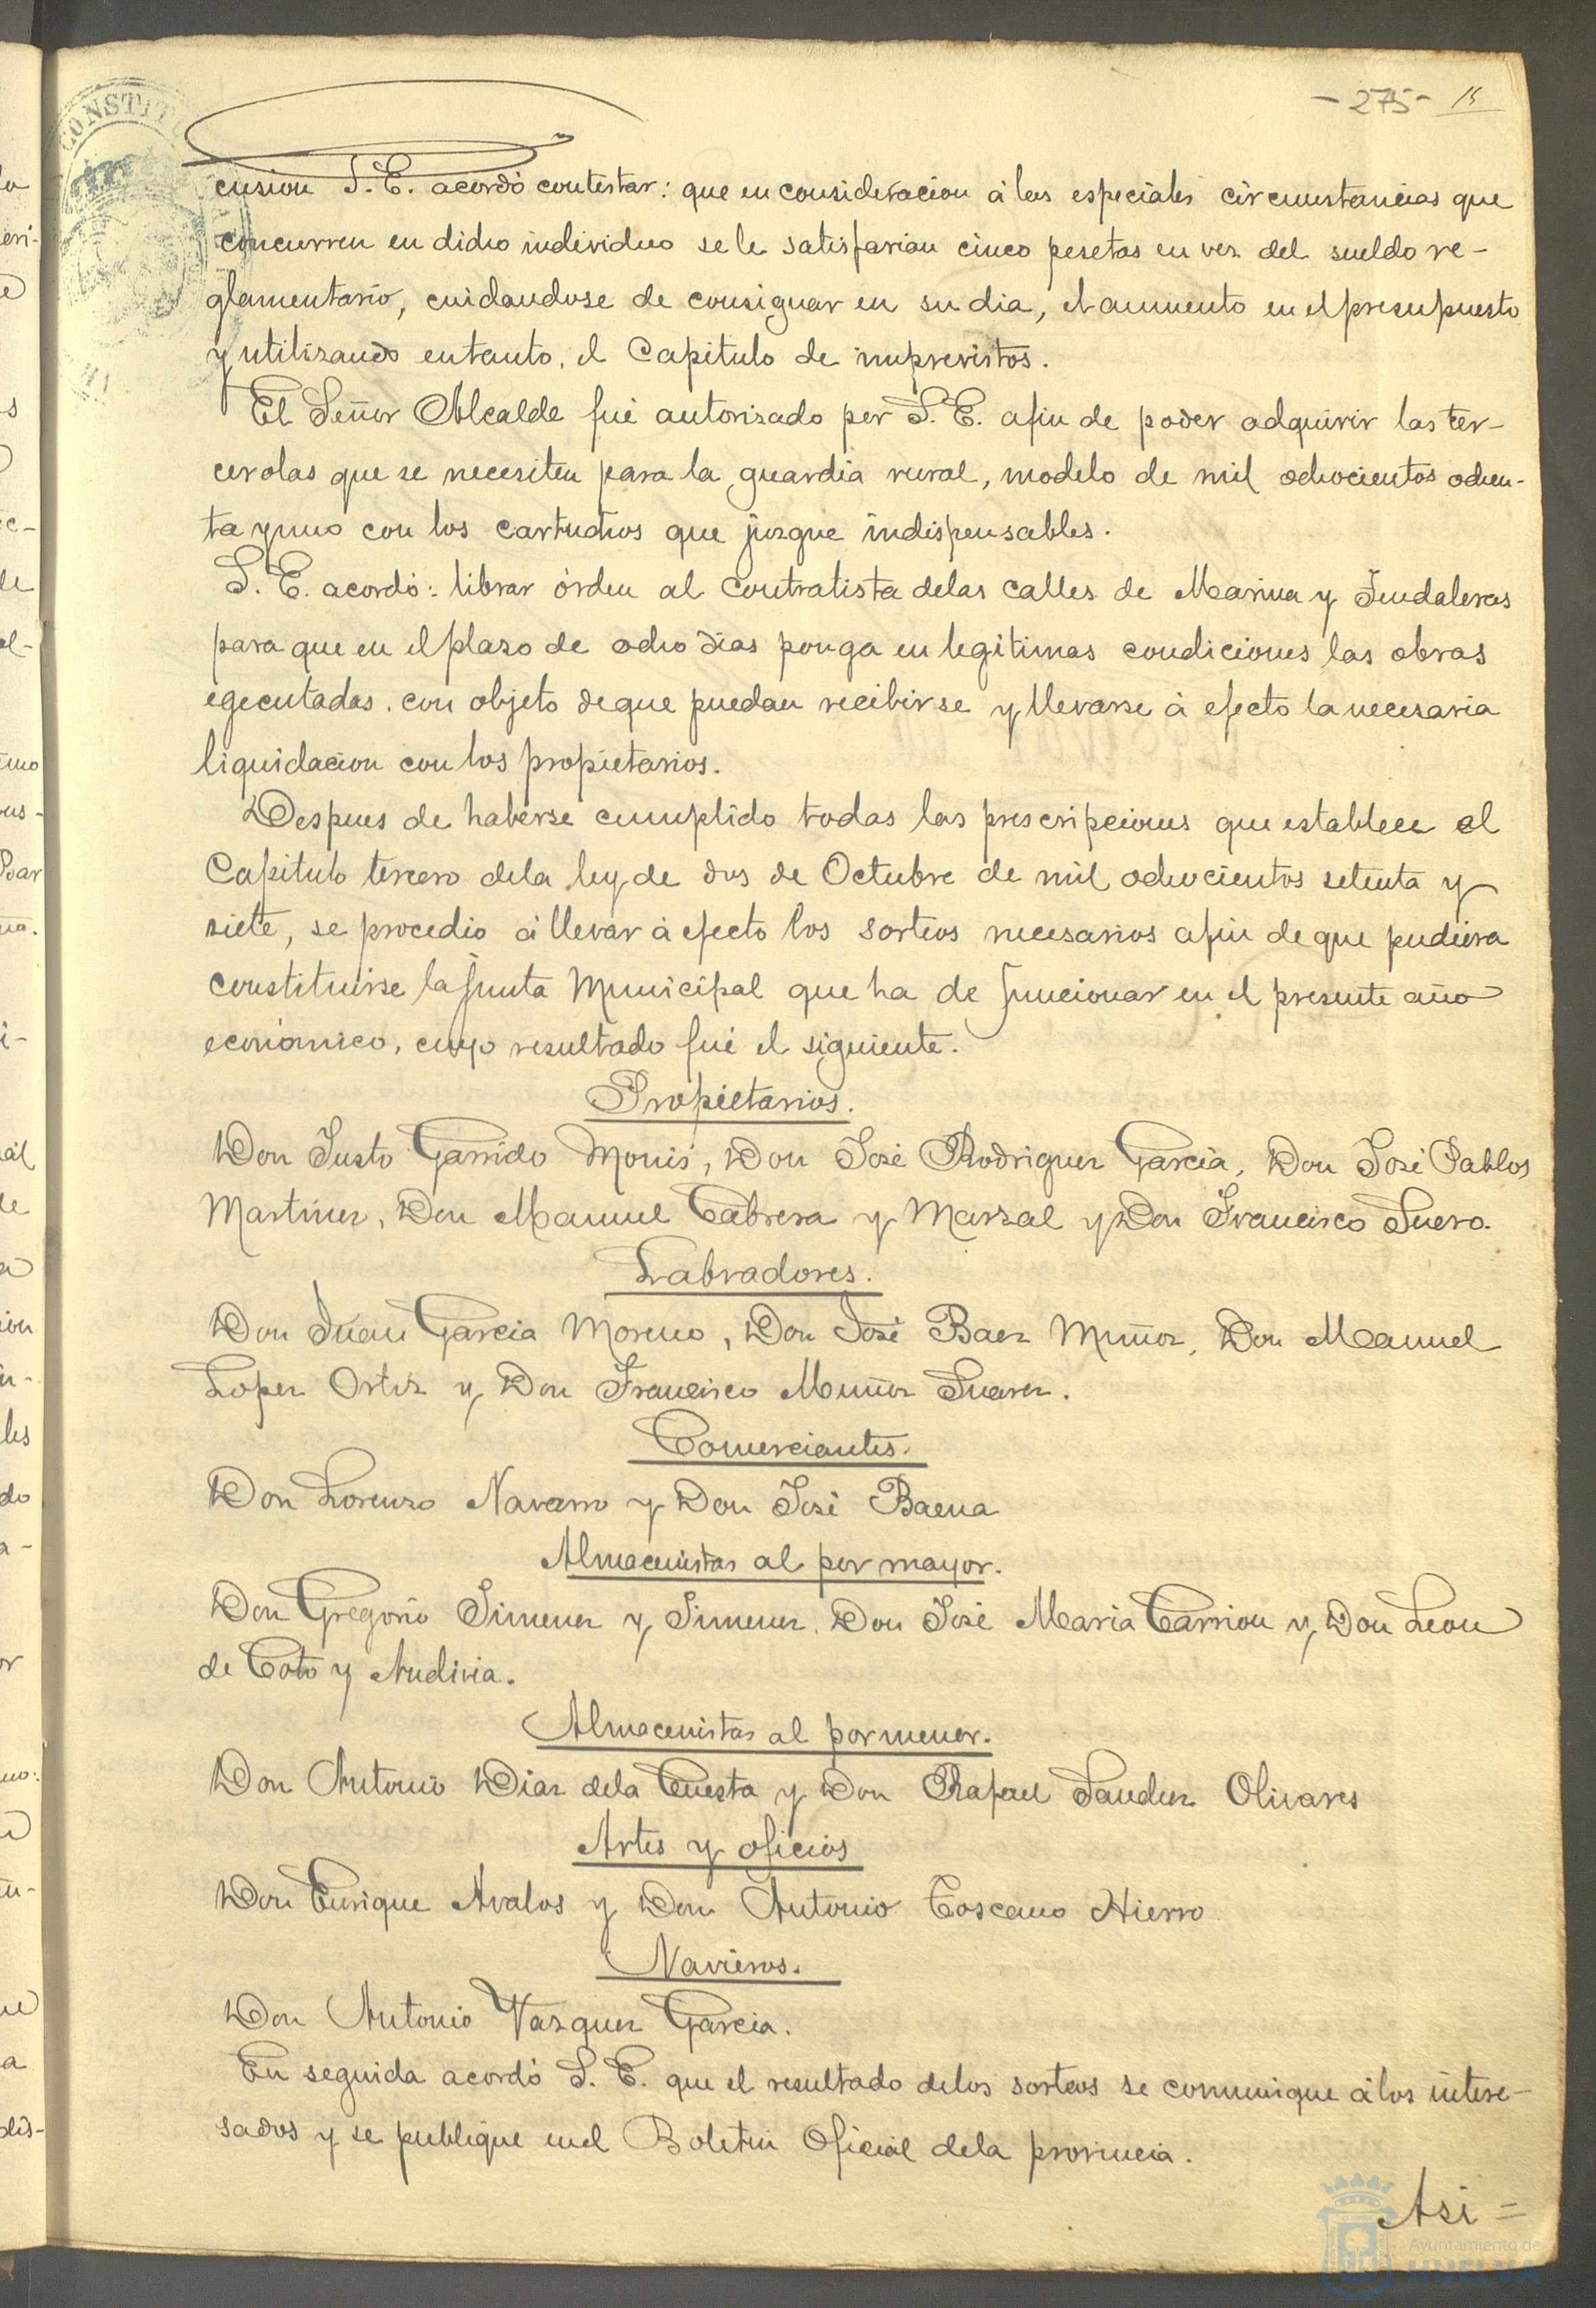 -275- 15
CONSTIT
cusion S. E. acordó contestar: que en consideracion á las especiales circunstancias que
concurren en dicho individuo se le satisfarian cinco pesetas en vez del sueldo re-
glamentario, cuidandose de consignar en su dia, el aumento en el presupuesto
y utilizando entanto, el Capitulo de imprevistos.
El Señor Alcalde fué autorizado por S. E. afin de poder adquirir las ter-
cerolas que se necesiten para la guardia rural, modelo de mil ochocientos ochen-
ta y uno con los cartuchos que juzgue indispensables.
S. E. acordó: librar órden al contratista delas calles de Marina y Fendaleras
para que en el plazo de ocho dias ponga en legitimas condiciones las obras
egecutadas, con objeto deque puedan recibirse y llevarse á efecto la necesaria
liquidacion con los propietarios.
Despues de haberse cumplido todas las prescripciones que establece el
Capitulo tercero dela ley de dos de Octubre de mil ochocientos setenta y
siete, se procedio á llevar á efecto los sorteos necesarios afin de que pudiera
constituirse la Junta Municipal que ha de funcionar en el presente año
económico, cuyo resultado fué el siguiente.
Propietarios.
Don Justo Garrido Monis, Don José Rodriguez Garcia, Don José Pablos
Martinez, Don Manuel Cabrera y Marzal y Don Francisco Suero.
Labradores.
Don Juan Garcia Moreno, Don José Baez Muñoz, Don Manuel
Lopez Ortiz y Don Francisco Muñoz Suarez.
Comerciantes.
Don Lorenzo Navarro y Don José Baena
Almacenistas al por mayor.
Don Gregorio Jimenez y Jimenez, Don José Maria Carrion y Don Leon
de Coto y Andivia.
Almacenistas al por menor.
Don Antonio Diaz dela Cuesta y Don Rafael Sanchez Olivares
Artes y oficios
Don Enrique Avalos y Don Antonio Toscano Hierro
Navieros.
Don Antonio Vazquez Garcia.
En seguida acordó S. E. que el resultado delos sorteos se comunique á los intere-
sados y se publique enel Boletin Oficial dela provincia.
Asi =
Ayuntamiento de
HUELVA